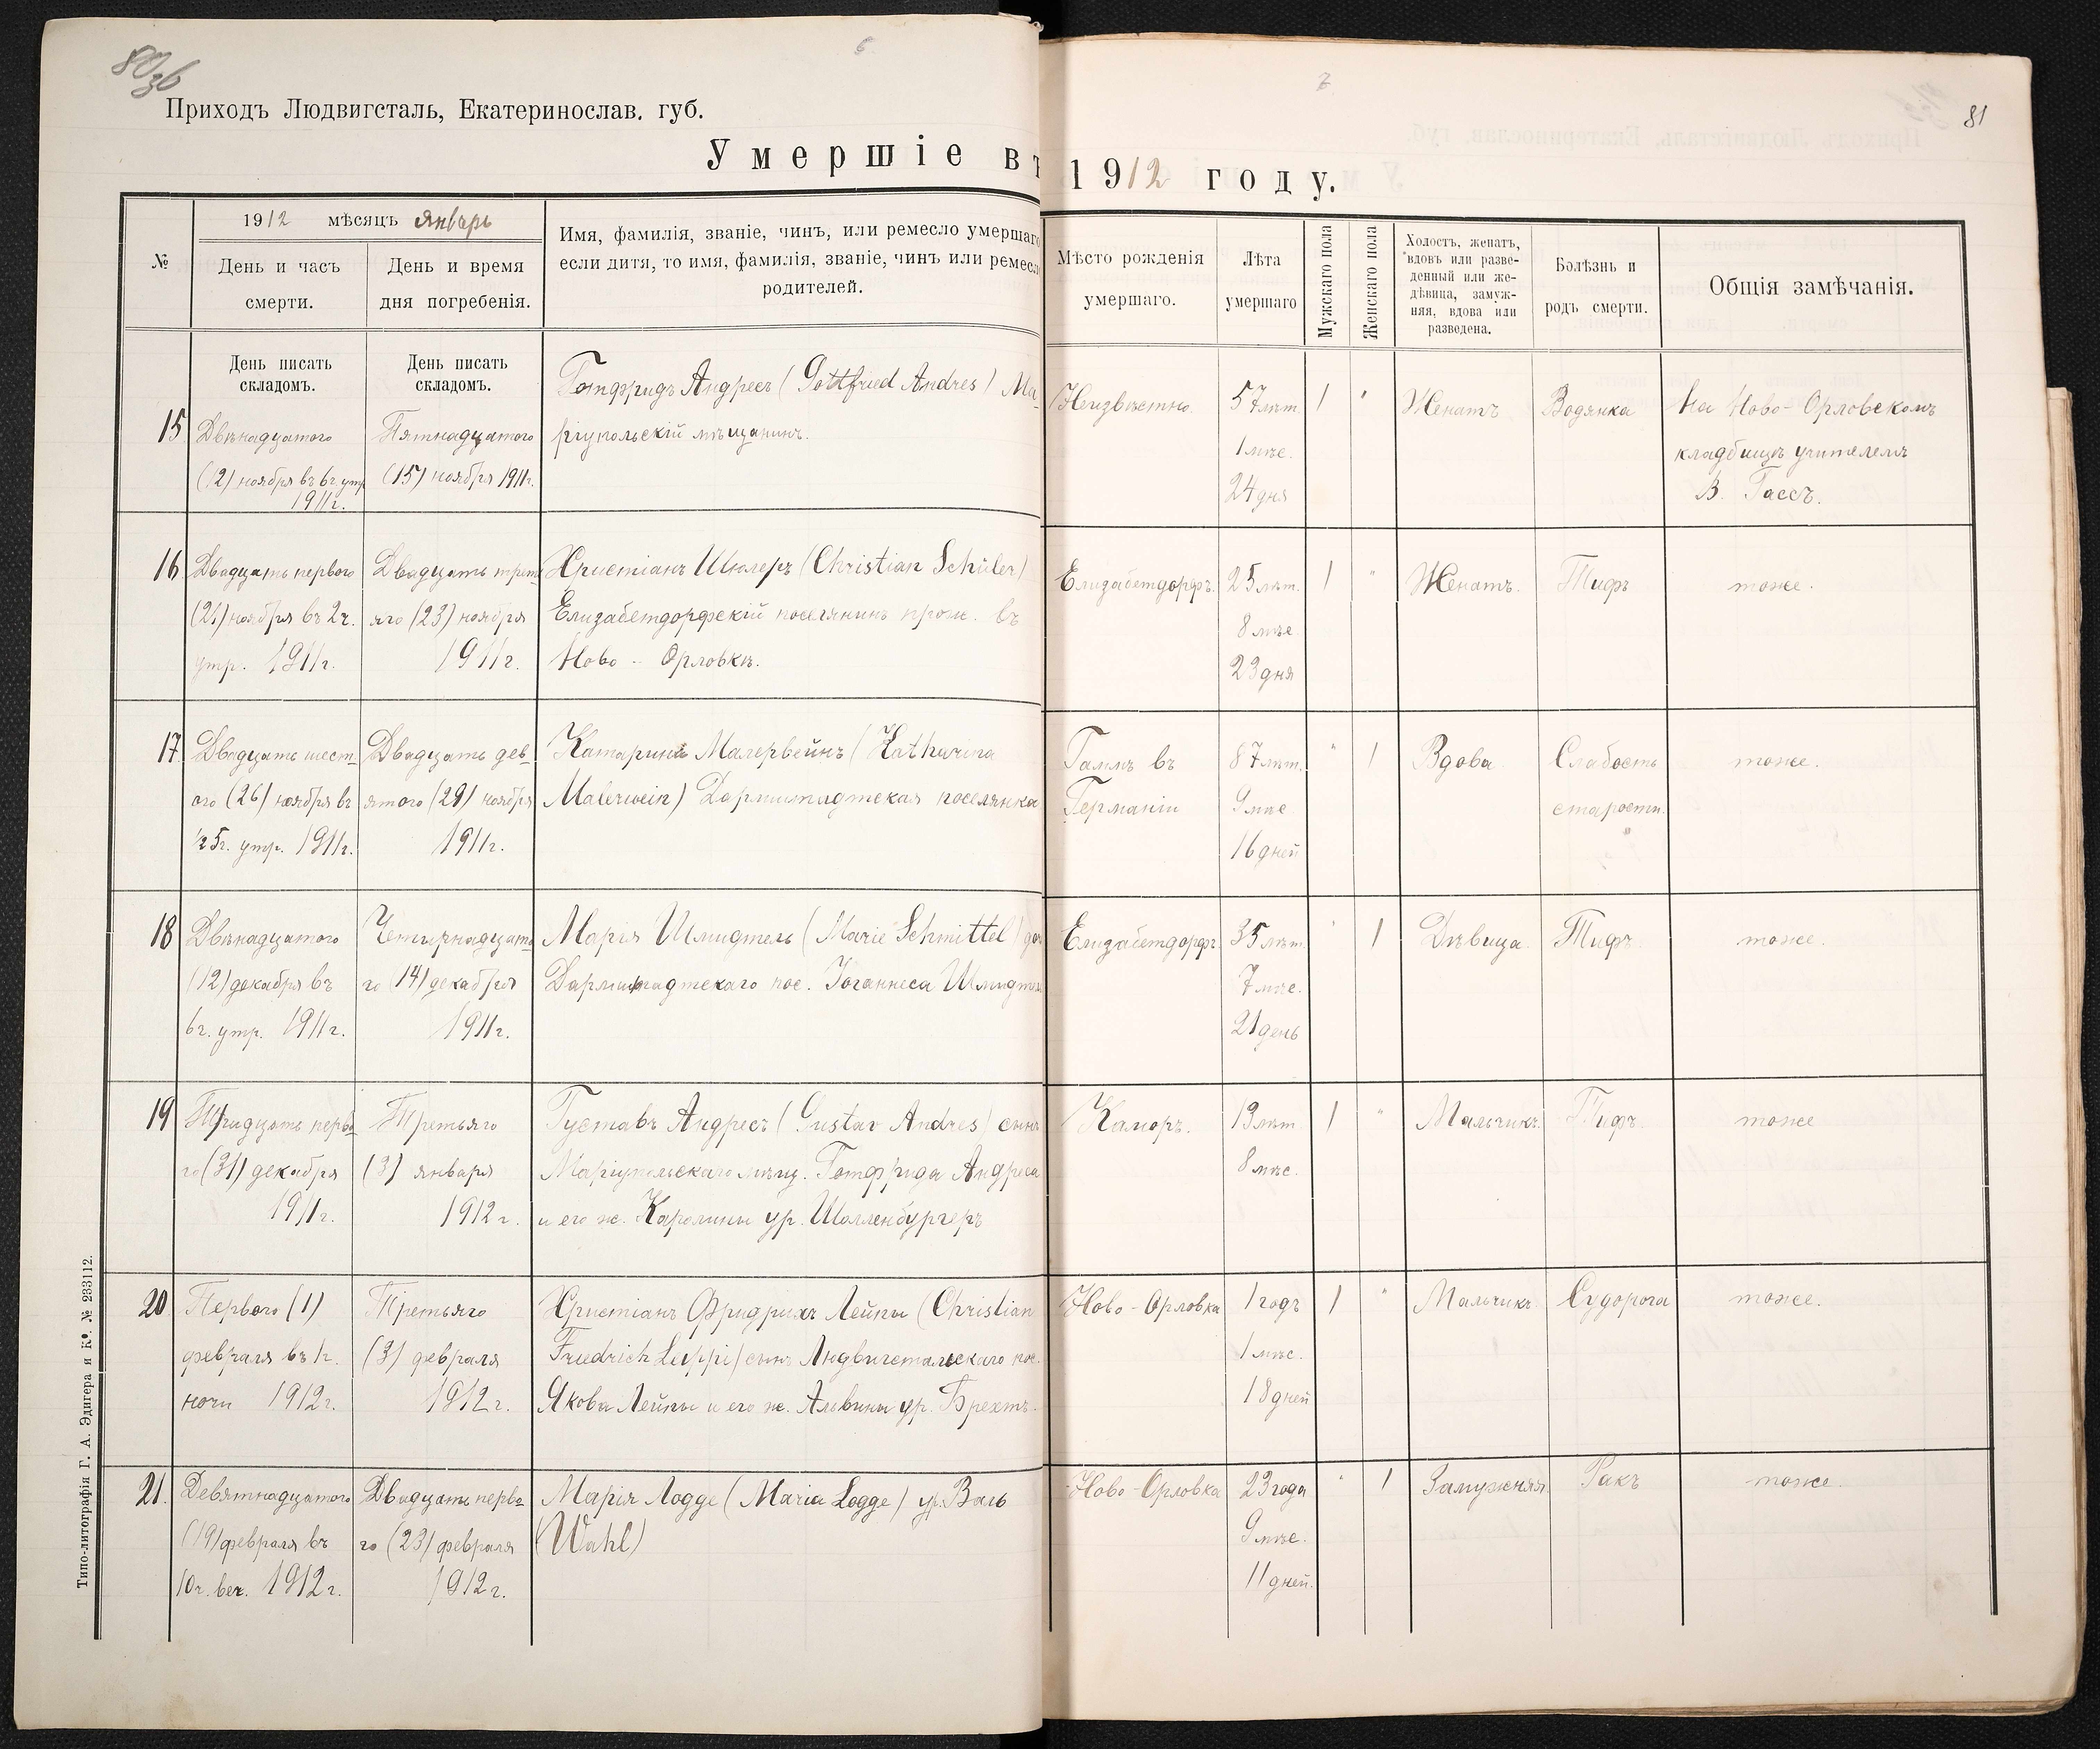 80 об
6
Приходъ Людвигсталь, Екатеринослав. губ.
Умершіе въ 1912 году.
7
81
№
1912 мѣсяцъ Январь
День и часъ смерти.
День и время дня погребенія.
Имя, фамилія, званіе, чинъ, или ремесло умершаго
если дитя, то имя, фамилія, званіе, чинъ или ремесло
родителей.
Мѣсто рожденія умершаго.
Лѣта умершаго
Мужскаго пола
Женскаго пола
Холостъ, женатъ,
вдовъ или разве-
денный или же-
дѣвица, замуж-
няя, вдова или
разведена.
Болѣзнь и родъ смерти.
Общія замѣчанія.
День писать складомъ.
День писать складомъ.
15
Двѣнадцатого
(12) ноября въ 6 ч. утр.
1911 г.
Пятнадцатого
(15) ноября 1911 г.
Готфридъ Андресъ (Gottfried Andres) Ма-
ріупольскій мѣщанинъ.
Неизвѣстно.
57 лѣт.
1 мѣс.
24 дня
1
"
Женатъ
Водянка
На Ново-Орловскомъ
кладбищѣ учителемъ
В. Гассъ.
16
Двадцать перваго
(21) ноября въ 2 ч.
утр. 1911 г.
Двадцать треть
яго (23) ноября
1911 г.
Христіанъ Шюлеръ (Christian Schüler)
Елизабетдорфскій поселянинъ прож. въ
Ново-Орловкѣ.
Елизабетдорфъ.
25 лѣт.
8 мѣс.
23 дня
1
"
Женатъ.
Тифъ
тоже.
17
Двадцать шест-
ого (26) ноября въ
½ 5 ч. утр. 1911 г.
Двадцать дев-
ятого (29) ноября
1911 г.
Катарина Малервейнъ (Katharina
Malerwein) Дармштадтская поселянка
Гаммъ въ
Германіи
87 лѣт.
9 мѣс.
16 дней
"
1
Вдова
Слабость
старости.
тоже.
18
Двѣнадцатого
(12) декабря въ
6 ч. утр. 1911 г.
Четырнадцато
го (14) декабря
1911 г.
Марія Шмидтель (Marie Schmittel) доч
Дармштадтскаго пос. Іоганнеса Шмидтел
Елизабетдорфъ.
35 лѣт.
7 мѣс.
21 день
"
1
Дѣвица.
Тифъ
тоже.
19
Тридцать перва-
го (31) декабря
1911 г.
Третьяго
(3) января
1912 г.
Густавъ Андресъ (Gustav Andres) сынъ
Маріупольскаго мѣщ. Готфрида Андреса
и его ж. Каролины ур. Шолленбургеръ
Каморъ.
13 лѣт
8 мѣс.
1
"
Мальчикъ.
Тифъ.
тоже
20
Первого (1)
февраля въ 1 ч.
ночи 1912 г.
Третьяго
(3) февраля
1912 г.
Христіанъ Фридрихъ Лейпи (Christian
Friedrich Leippi) сынъ Людвигстальскаго пос.
Якова Лейпи и его ж. Альвины ур. Брехтъ.
Ново-Орловка
1 годъ
1 мѣс.
18 дней
1
"
Мальчикъ
Судорога
тоже.
21.
Девятнадцатого
(19) февраля въ
10 ч. веч. 1912 г.
Двадцать перва-
го (23) февраля
1912 г.
Марія Логге (Maria Logge) ур. Валь
(Wahl)
Ново-Орловка
23 года
9 мѣс.
11 дней.
"
1
Замужняя
Ракъ
тоже.
Типо-литографія Г. А. Эдигера и Кº. № 233112.